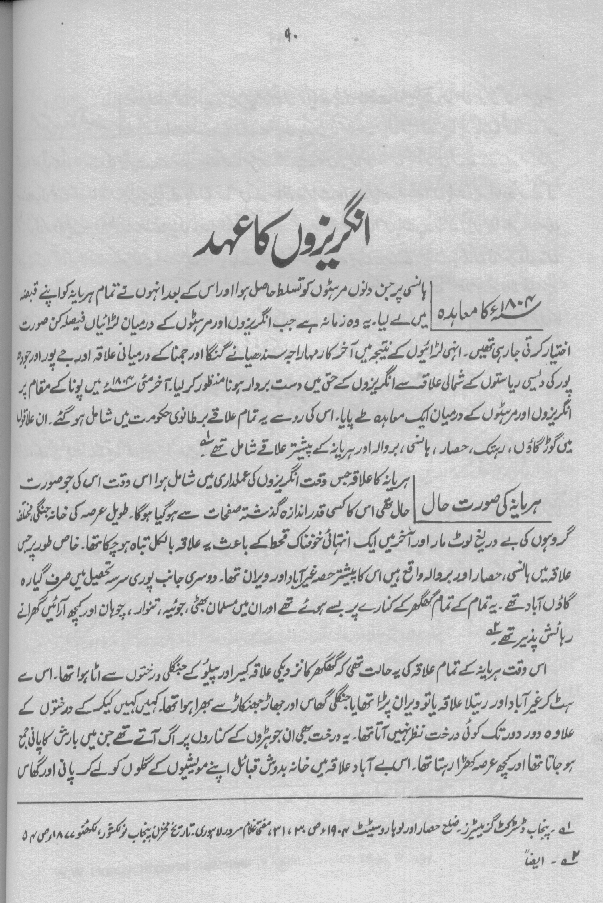 ۹۰
انگریزوں کا عہد
۱۸۰۴ء کا معاہدہ
ہانسی پر جن دنوں مرہٹوں کو تسلط حاصل ہوا اور اس کے بعد انہوں نے تمام ہریانہ کو اپنے قبضہ
میں لے لیا۔ یہ وہ زمانہ ہے جب انگریزوں اور مرہٹوں کے درمیان لڑائیاں فیصلہ کن صورت
اختیار کرتی جا رہی تھیں۔ انہی لڑائیوں کے نتیجہ میں آخر کار مہاراجہ سندھیا نے گنگا اور جمنا کے درمیانی علاقہ اور جے پور اور جودھ
پور کی دیسی ریاستوں کے شمالی علاقہ سے انگریزوں کے حق میں دست بردار ہونا منظور کر لیا۔ آخر مئی ۱۸۰۴ء میں پونا کے مقام پر
انگریزوں اور مرہٹوں کے درمیان ایک معاہدہ طے پایا۔ اس کی رو سے یہ تمام علاقے برطانوی حکومت میں شامل ہو گئے۔ ان علاقوں
میں گوڑگاؤں، رہتک، حصار، ہانسی، بروالہ اور ہریانہ کے بیشتر علاقے شامل تھے ۱؎
ہریانہ کی صورت حال
ہریانہ کا علاقہ جس وقت انگریزوں کی عملداری میں شامل ہوا اس وقت اس کی جو صورت
حال تھی اس کا کسی قدر اندازہ گذشتہ صفحات سے ہو گیا ہوگا۔ طویل عرصہ کی خانہ جنگی مختلف
گروہوں کی بے دریغ لوٹ مار اور آخر میں ایک انتہائی خوفناک قحط کے باعث یہ علاقہ بالکل تباہ ہو چکا تھا۔ خاص طور پر جس
علاقہ میں ہانسی، حصار اور بروالہ واقع ہیں اس کا بیشتر حصہ غیر آباد اور ویران تھا۔ دوسری جانب پوری سرسہ تحصیل میں صرف گیارہ
گاؤں آباد تھے۔ یہ تمام کے تمام گھگھر کے کنارے پر بسے ہوئے تھے اور ان میں مسلمان بھٹی، جوئیہ، تنوار، چوہان اور کچھ آرائیں گھرانے
رہائش پذیر تھے ۲؎
اس وقت ہریانہ کے تمام علاقہ کی یہ حالت تھی کہ گھگھر کا نزدیکی علاقہ کیر اور پیلو کے جنگلی درختوں سے اٹا ہوا تھا۔ اس سے
ہٹ کر غیر آباد اور رتیلا علاقہ یا تو ویران پڑا تھا یا جنگلی گھاس اور جھاڑ جھنکاڑ سے بھرا ہوا تھا۔ کہیں کہیں کیکر کے درختوں کے
علاوہ دور دور تک کوئی درخت نظر نہیں آتا تھا۔ یہ درخت بھی ان جوہڑوں کے کناروں پر اگ آتے تھے جن میں بارش کا پانی جمع
ہو جاتا تھا اور کچھ عرصہ کھڑا رہتا تھا۔ اس بے آباد علاقہ میں خانہ بدوش قبائل اپنے مویشیوں کے گلوں کو لے کر پانی اور گھاس
۱؎ ۔ پنجاب ڈسٹرکٹ گزیٹیرز۔ ضلع حصار اور لوہارو سٹیٹ ۱۹۰۴ء ص ۳۰، ۳۱، مفتی غلام سرور لاہوری۔ تاریخ مخزن پنجاب نولکشور، لکھنؤ ۱۸۷۷ء ص ۵۴
۲؎ ۔ ایضاً